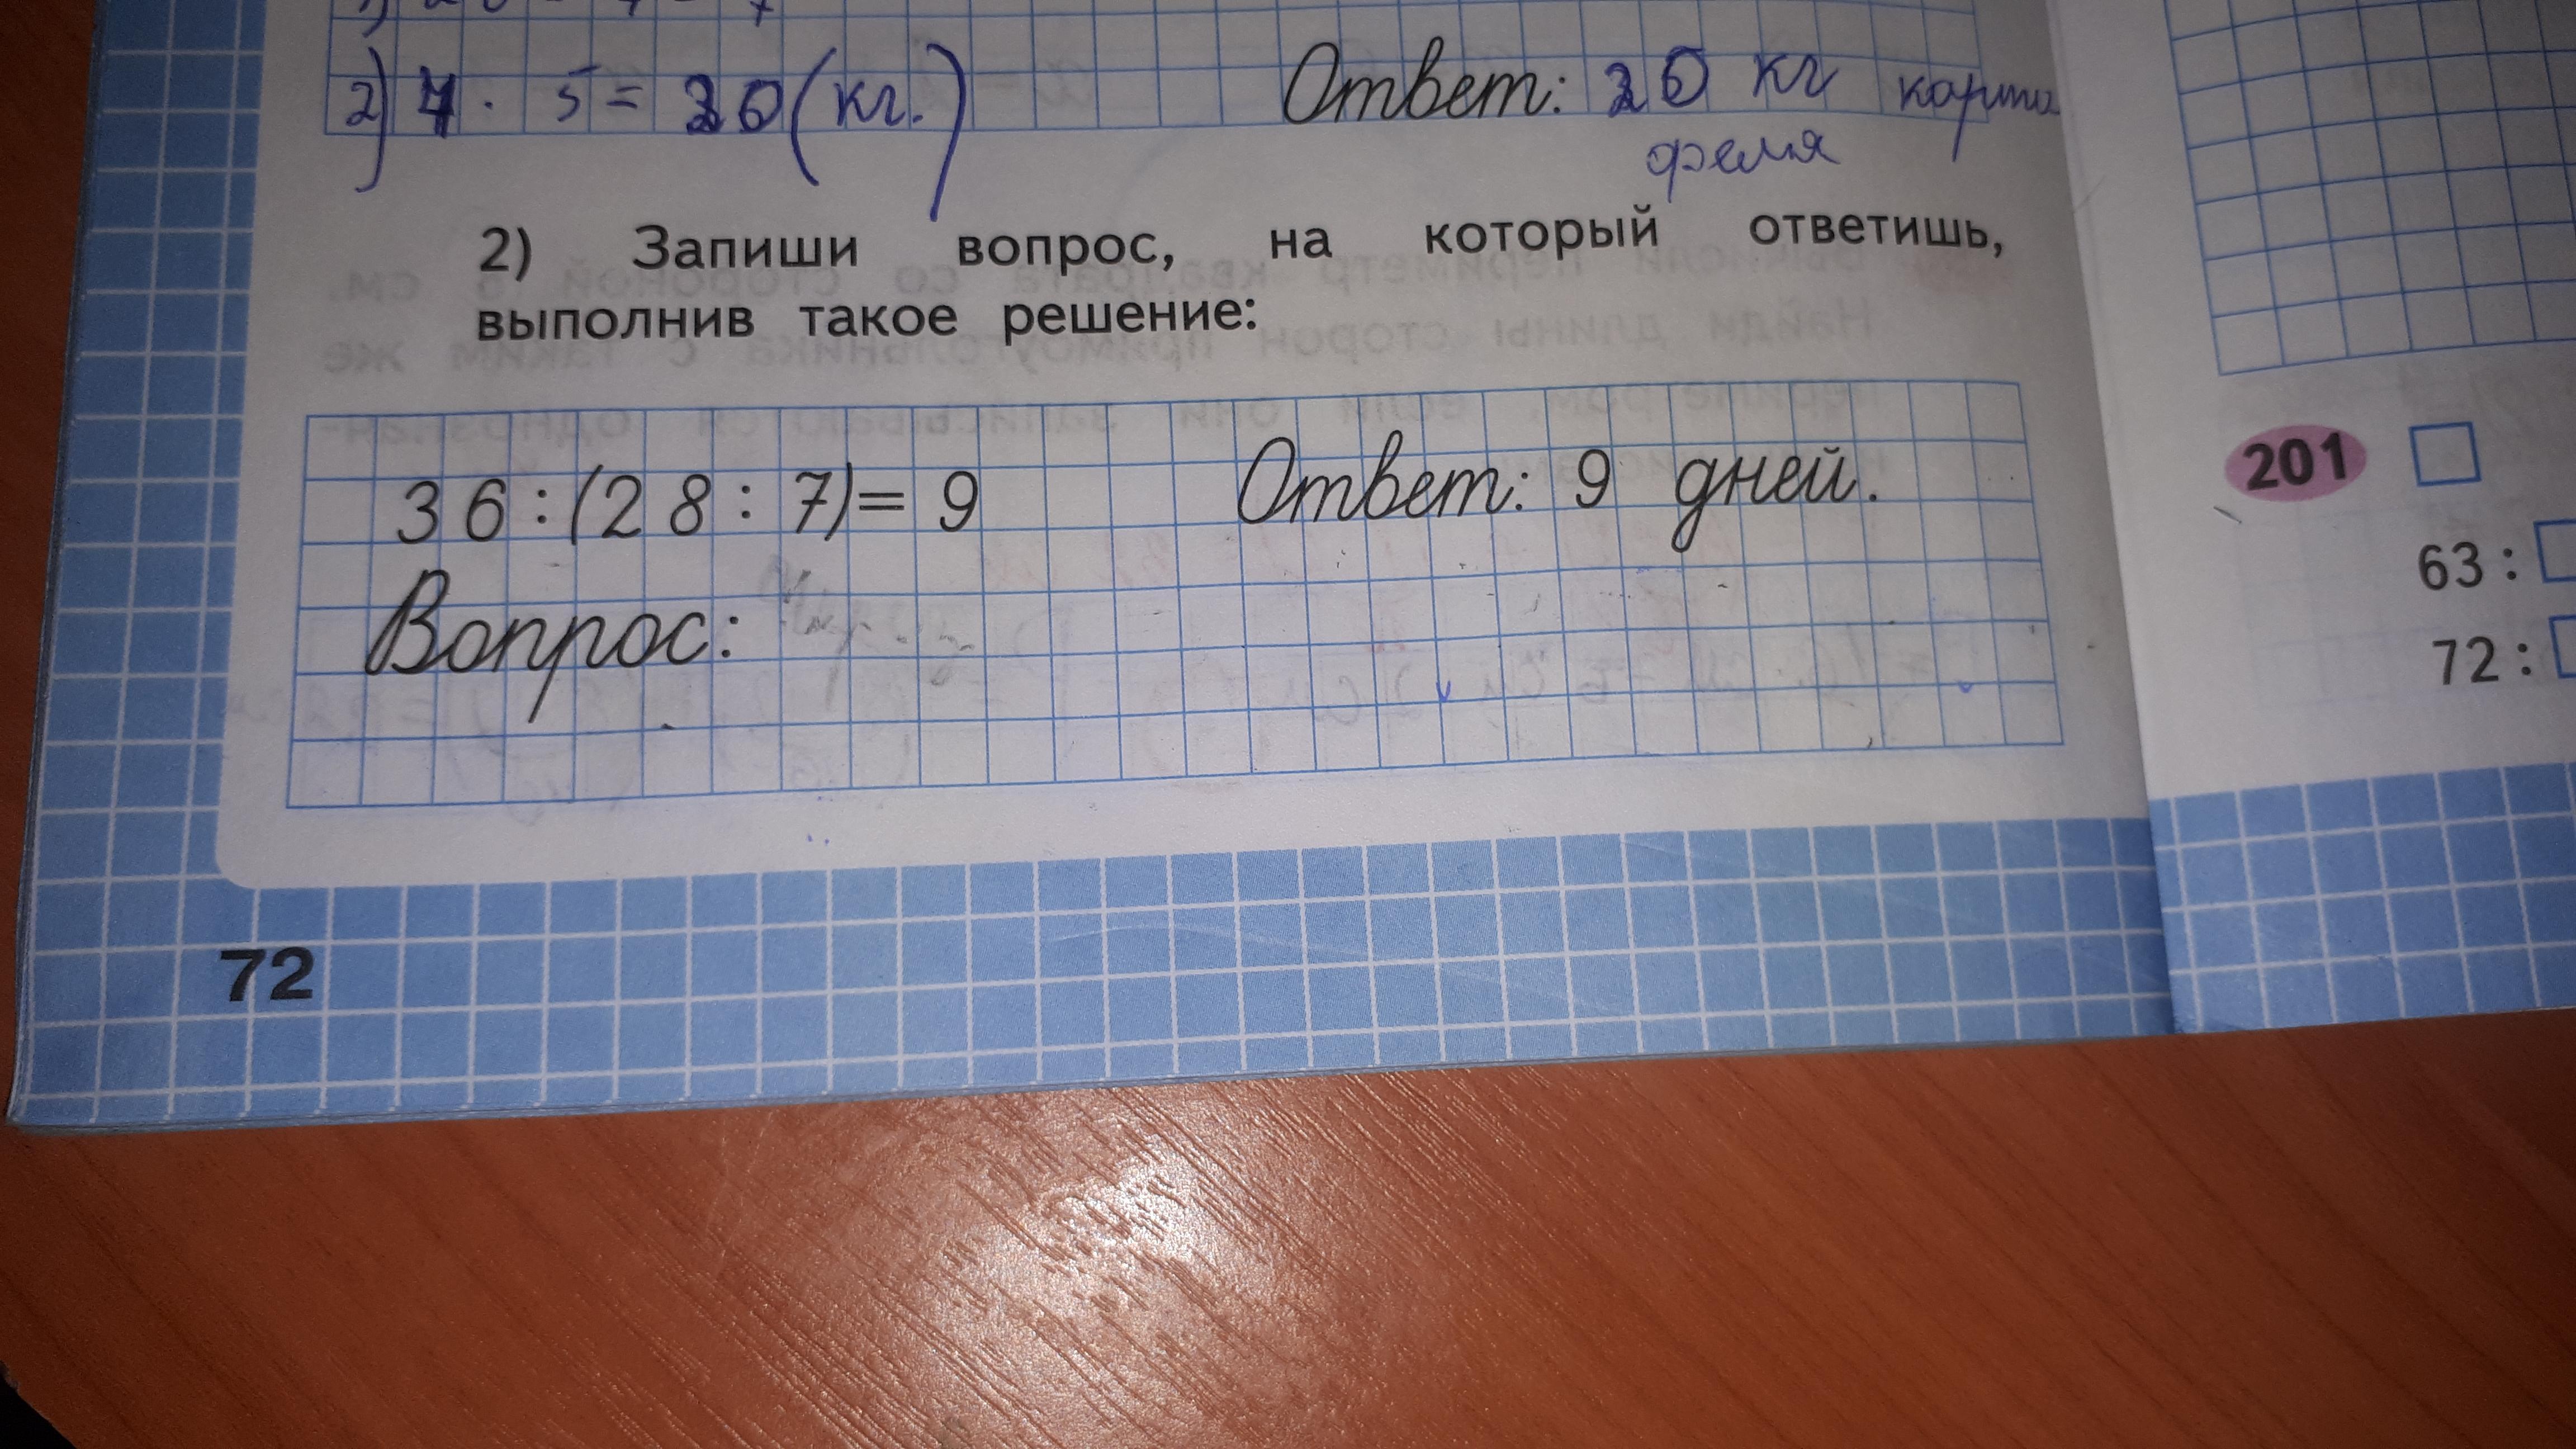 2) 4 · 5 = 20 (кг.) Ответ: 20 кг карто
феля
2) Запиши вопрос, на который ответишь,
выполнив такое решение:
36 : (28 : 7) = 9 Ответ: 9 дней.
Вопрос:
72
201
63 :
72 :